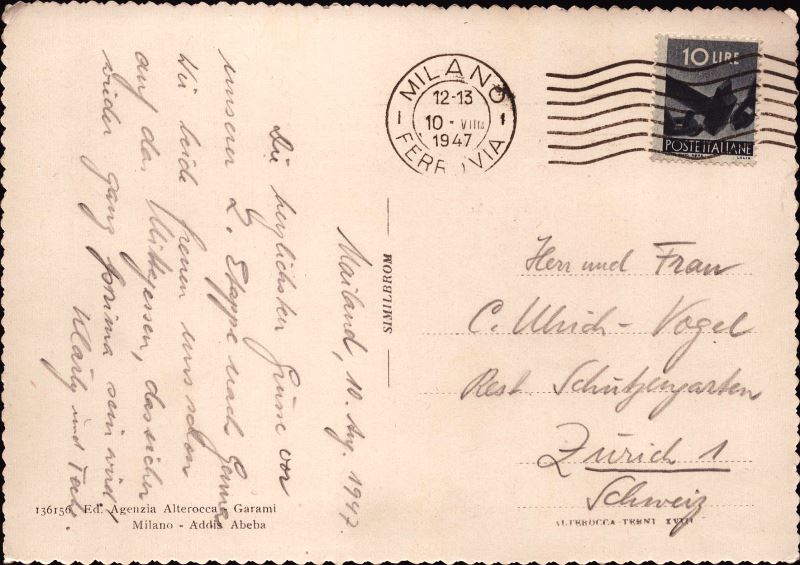 Mailand, 10. Aug. 1947.
Die herzlichsten Grüsse vor
unserer 2. Etappe nach Genua
Wir beide freuen uns schon
auf das Mittagessen, das sicher
wieder ganz prima sein wird!
und
136156 Ed. Agenzia Alterocca Garami
Milano - Addis Abeba
SIMILBROM
MILANO
12-13
10 - VIII
1947
FERROVIA
10 LIRE
POSTE ITALIANE
Herr und Frau
C. Ulrich-Vogel
Rest. Schützengarten
Zürich 1
Schweiz
ALTEROCCA-TERNI